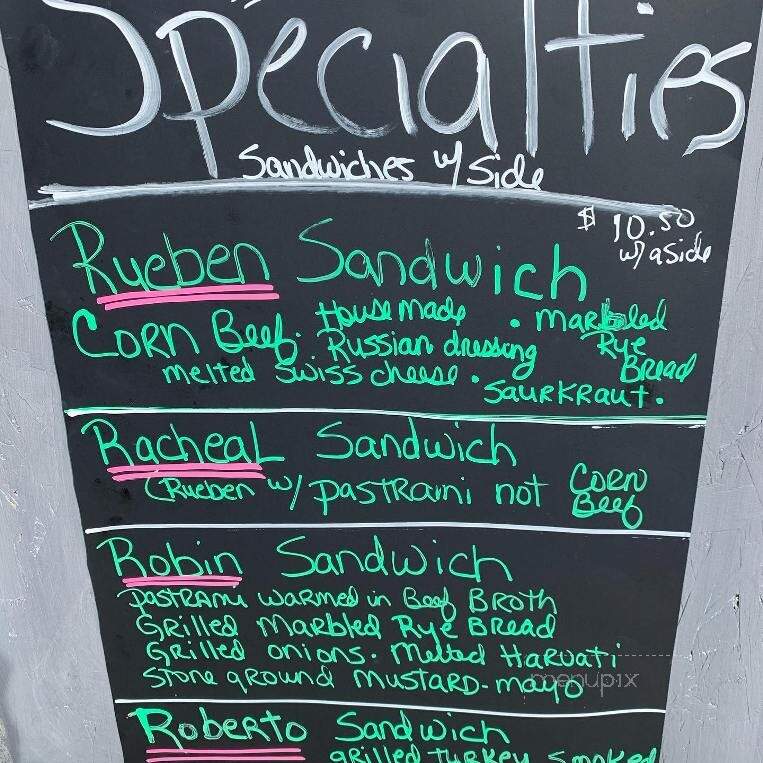 Specialties
Sandwiches w/ Side
$ 10.50
w/ a side
Rueben Sandwich
Corn Beef. House made . marbled
Russian dressing Rye
melted Swiss cheese . Bread
Saurkraut.
Racheal Sandwich
(Rueben w/ pastrami not Corn
Beef
Robin Sandwich
Pastrami warmed in Beef Broth
Grilled Marbled Rye Bread
Grilled onions. Melted Harvati
Stone ground Mustard - mayo
menupix
Roberto Sandwich
grilled turkey smoked